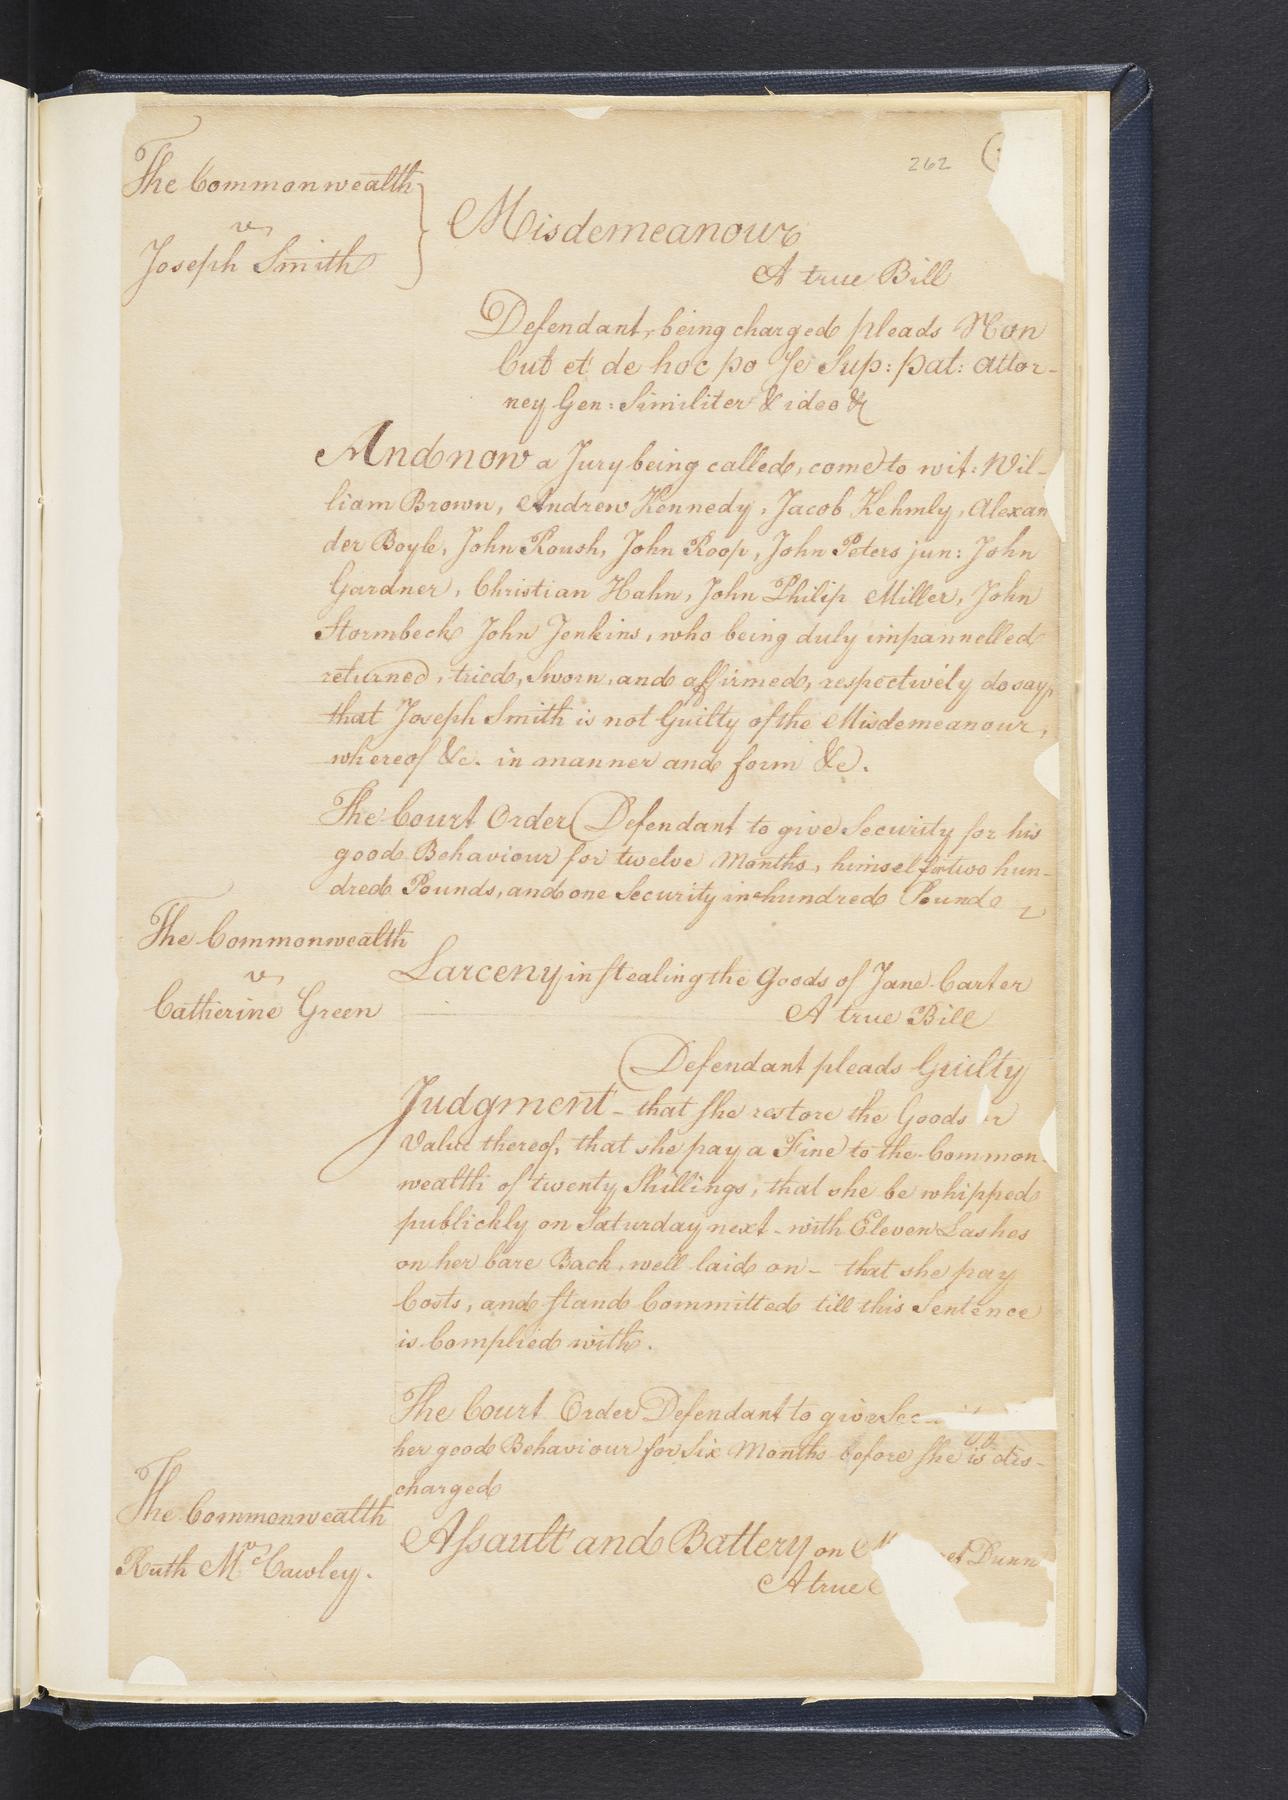 262
The Commonwealth
vs
Joseph Smith
Misdemeanour
A true Bill
Defendant, being charged pleads Non
Cul et de hoc po se Sup: pat: Attor-
ney Gen: Similiter & ideo &
And now a Jury being called, come to wit: Wil-
liam Brown, Andrew Kennedy, Jacob Kehmly, Alexan
der Boyle, John Roush, John Roop, John Peters jun: John
Gardner, Christian Hahn, John Philip Miller, John
Stormbeck John Jenkins, who being duly impannelled
returned, tried, Sworn, and affirmed, respectively do say,
that Joseph Smith is not Guilty of the Misdemeanour,
whereof &c. in manner and form &c.
The Court Order Defendant to give Security for his
good Behaviour for twelve Months, himself in two hun-
dred Pounds, and one Security in hundred Pounds
The Commonwealth
vs
Catherine Green
Larceny in stealing the Goods of Jane Carter
A true Bill
Defendant pleads Guilty
Judgment - that she restore the Goods or
Value thereof, that she pay a Fine to the Common-
wealth of twenty Shillings, that she be whipped
publickly on Saturday next - with Eleven Lashes
on her bare Back, well laid on - that she pay
Costs, and stand Committed till this Sentence
is Complied with.
The Court Order Defendant to give
her good Behaviour for Six Months before she is dis-
charged
The Commonwealth
vs
Ruth McCawley.
Assault and Battery on Dunn
A true